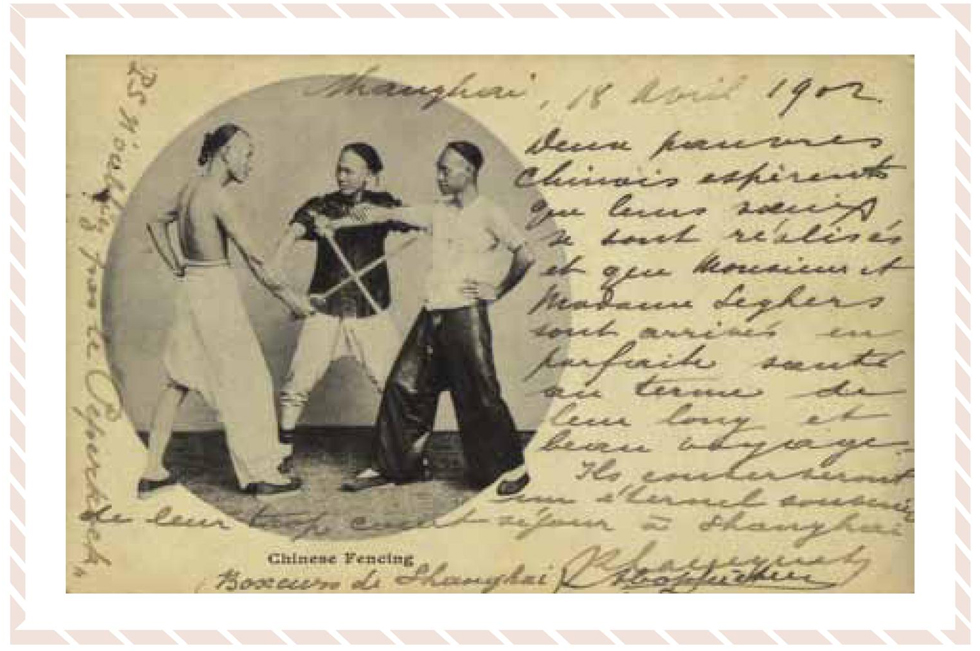 Shanghai, 18 Avril 1902.
Deux pauvres
Chinois espèrent
que leurs vœux
se sont réalisés
et que Monsieur et
Madame Seghers
sont arrivés en
parfaite santé
au terme de
leur long et
beau voyage.
Ils conserveront
un éternel souvenir
de leur trop court séjour à Shanghai
Chinese Fencing
(Boxeurs de Shanghai)